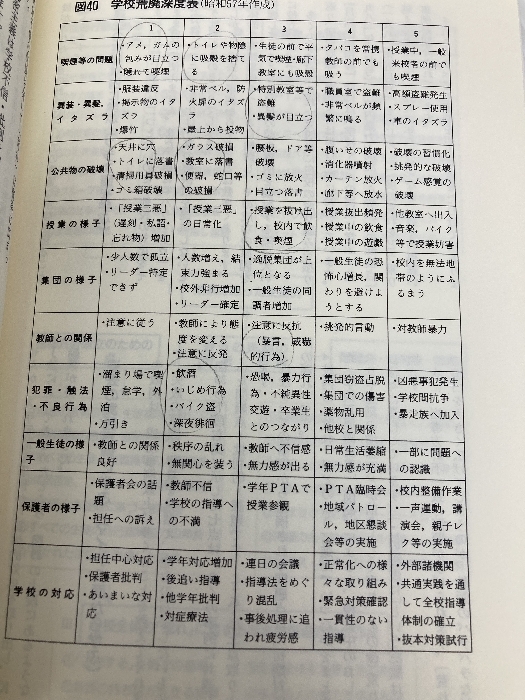 図40 学校荒廃深度表(昭和57年作成)
1 2 3 4 5
喫煙等の問題
・アメ,ガムの
包みが目立つ
・隠れて喫煙
・トイレや物陰
に吸殻を捨て
る
・生徒の前で平
気で喫煙・廊下
教室にも吸殻
・タバコを常携
教師の前でも
吸う
・授業中,一般
来校者の前で
も喫煙
異装・異髪,
イタズラ
・服装違反
・掲示物のイタ
ズラ
・爆竹
・非常ベル,防
火扉のイタズ
ラ
・屋上から投物
・特別教室等で
盗難
・異髪が目立つ
・職員室で盗難
・非常ベルが頻
繁に鳴る
・高額盗難発生
・スプレー使用
・車のイタズラ
公共物の破壊
・天井に穴
・トイレに落書
・清掃用具破損
・ゴミ箱破壊
・ガラス破損
・教室に落書
・便器,蛇口等
の破損
・腰板,ドア等
破壊
・ゴミに放火
・目立つ落書
・腹いせの破壊
・消化器噴射
・カーテン放火
・廊下等へ放水
・破壊の習慣化
・挑発的な破壊
・ゲーム感覚の
破壊
授業の様子
・「授業三悪」
(遅刻・私語・
忘れ物)増加
・「授業三悪」
の日常化
・授業を抜け出
し,校内で飲
食・喫煙
・授業抜出頻発
・授業中の飲食
・授業中の遊戯
・他教室へ出入
・音楽,バイク
等で授業妨害
集団の様子
・少人数で孤立
・リーダー特定
できず
・人数増え,結
束力強まる
・校外非行増加
・リーダー確定
・逸脱集団が上
位となる
・一般生徒の同
調者増加
・一般生徒の恐
怖心増長,関
わりを避けよ
うとする
・校内を無法地
帯のようにふ
るまう
教師との関係
・注意に従う
・教師により態
度を変える
・注意に反発
・注意に反抗
(暴言,威嚇
的行為)
・挑発的言動
・対教師暴力
犯罪・触法
・不良行為
・溜まり場で喫
煙,怠学,外
泊
・万引き
・飲酒
・いじめ行為
・バイク盗
・深夜徘徊
・恐喝,暴力行
為・不純異性
交遊・卒業生
とのつながり
・集団窃盗占脱
・集団での傷害
・薬物乱用
・他校と関係
・凶悪事犯発生
・学校間抗争
・暴走族へ加入
一般生徒の様
子
・教師との関係
良好
・秩序の乱れ
・無関心を装う
・教師へ不信感
・無力感が出る
・日常生活萎縮
・無力感が充満
・一部に問題へ
の認識
保護者の様子
・保護者会の話
題
・担任への訴え
・教師不信
・学校の指導へ
の不満
・学年PTAで
授業参観
・PTA臨時会
・地域パトロー
ル,地区懇談
会等の実施
・校内整備作業
・一声運動,講
演会,親子レ
ク等の実施
学校の対応
・担任中心対応
・保護者批判
・あいまいな対
応
・学年対応増加
・後追い指導
・他学年批判
・対症療法
・連日の会議
・指導法をめぐ
り混乱
・事後処理に追
われ疲労感
・正常化への様
々な取り組み
・緊急対策確認
・一貫性のない
指導
・外部諸機関
・共通実践を通
して全校指導
体制の確立
・抜本対策試行